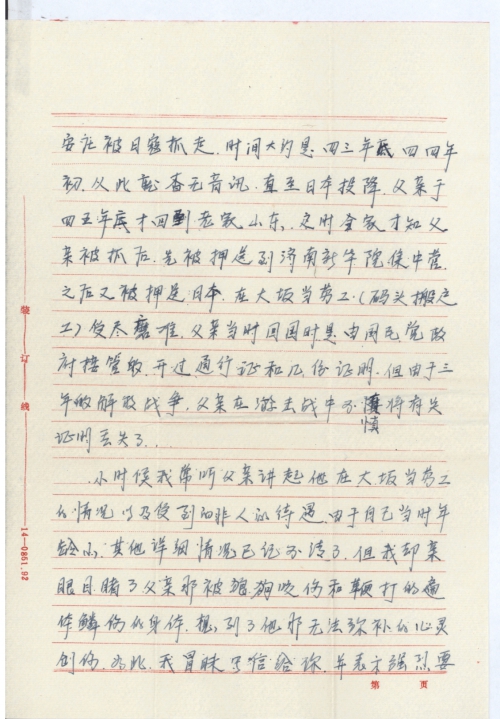 安庄被日寇抓走。时间大约是四三年底四四年
初，从此就杳无音讯，直至日本投降，父亲于
四五年底才回到老家山东，这时全家才知父
亲被抓后，先被押送到济南新华院集中营，
之后又被押送日本，在大坂当劳工（码头搬运
工）受尽磨难，父亲当时回国时是由国民党政
府接管的，开过通行证和几份证明，但由于三
年的解放战争，父亲在游击战中不慎将有关
证明丢失了。
小时候我常听父亲讲起他在大坂当劳工
的情况以及受到的非人的待遇，由于自己当时年
龄小，其他详细情况已记不清了，但我却亲
眼目睹了父亲那被狼狗咬伤和鞭打的遍
体鳞伤的身体，想到了他那无法弥补的心灵
创伤，为此，我冒昧写信给你，并表示强烈要
装订线
14—0851.92
第 页